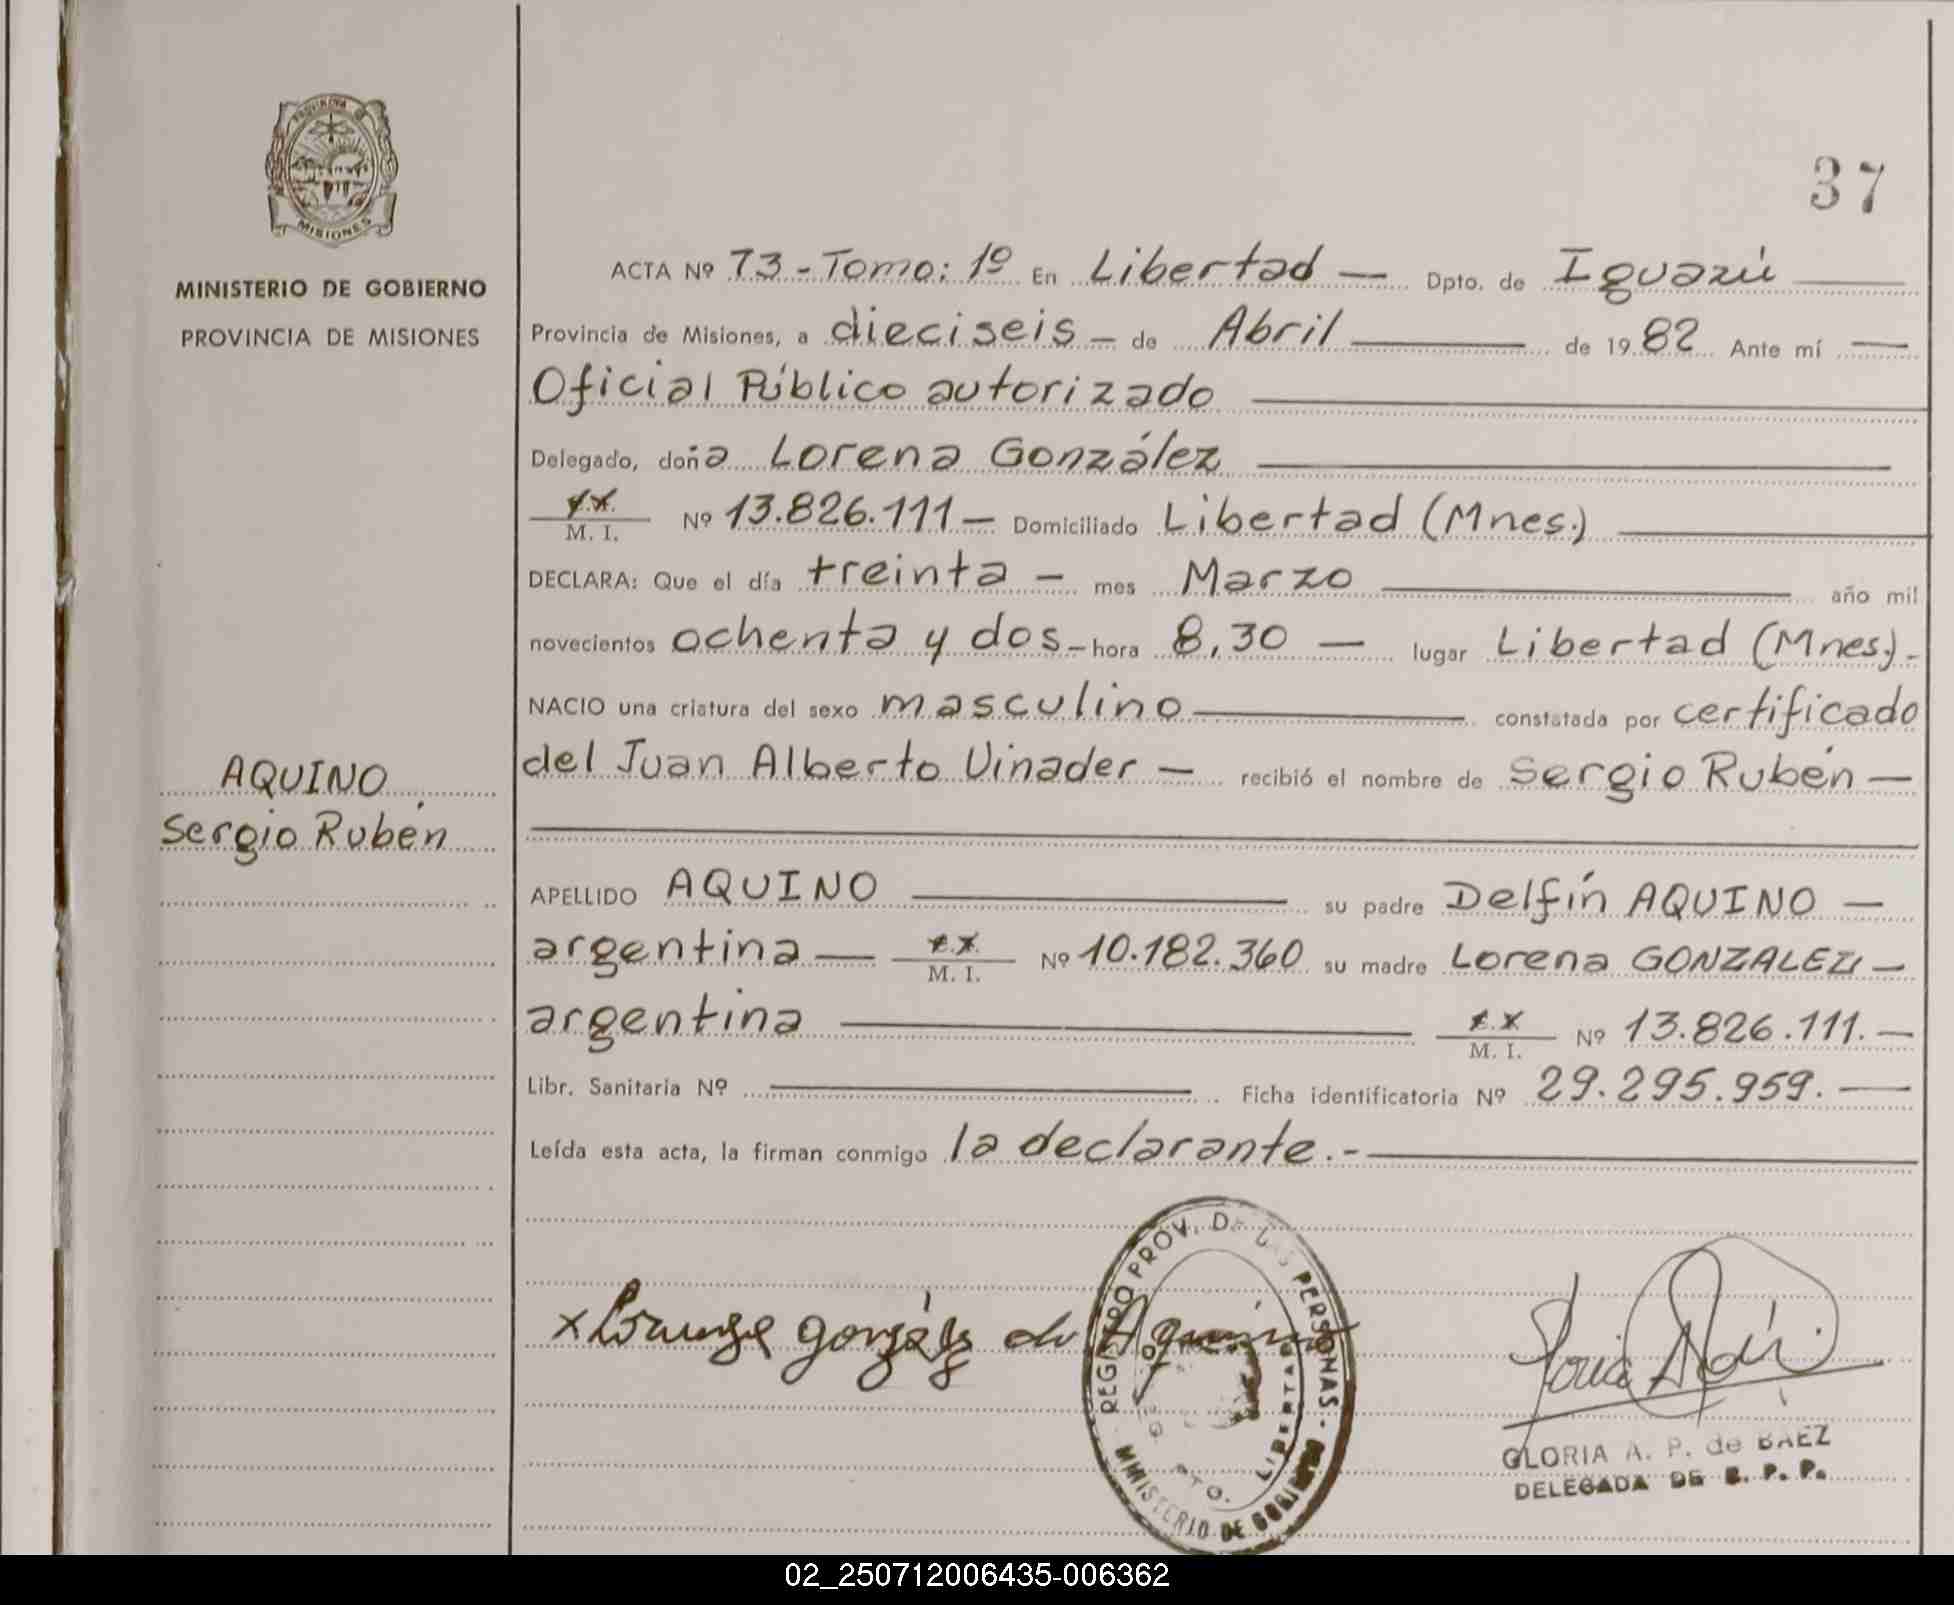 PROVINCIA
MISIONES
MINISTERIO DE GOBIERNO
PROVINCIA DE MISIONES
37
ACTA Nº 73 - Tomo: 1º En Libertad — Dpto. de Iguazú
Provincia de Misiones, a dieciseis — de Abril de 1982 Ante mí
Oficial Público autorizado
Delegado, doña Lorena González
M. I. Nº 13.826.111 — Domiciliado Libertad (Mnes.)
DECLARA: Que el día treinta — mes Marzo año mil
novecientos ochenta y dos - hora 8,30 — lugar Libertad (Mnes).-
NACIO una criatura del sexo masculino constatada por certificado
del Juan Alberto Vinader — recibió el nombre de Sergio Rubén —
AQUINO
Sergio Rubén
APELLIDO AQUINO su padre Delfín AQUINO —
argentina — M. I. Nº 10.182.360 su madre Lorena GONZALEZ —
argentina M. I. Nº 13.826.111.—
Libr. Sanitaria Nº Ficha identificatoria Nº 29.295.959.—
Leída esta acta, la firman conmigo la declarante.-
REGISTRO PROV. DE LAS PERSONAS - MINISTERIO DE GOBIERNO
LIBERTAD
gonzález de
GLORIA A. P. de BAEZ
DELEGADA DE R. P. P.
02_250712006435-006362